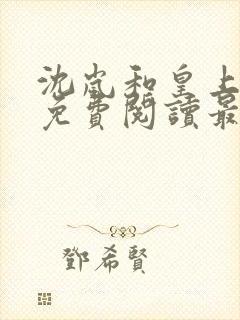 沈嵐和皇上
免費閱讀最
鄧希賢